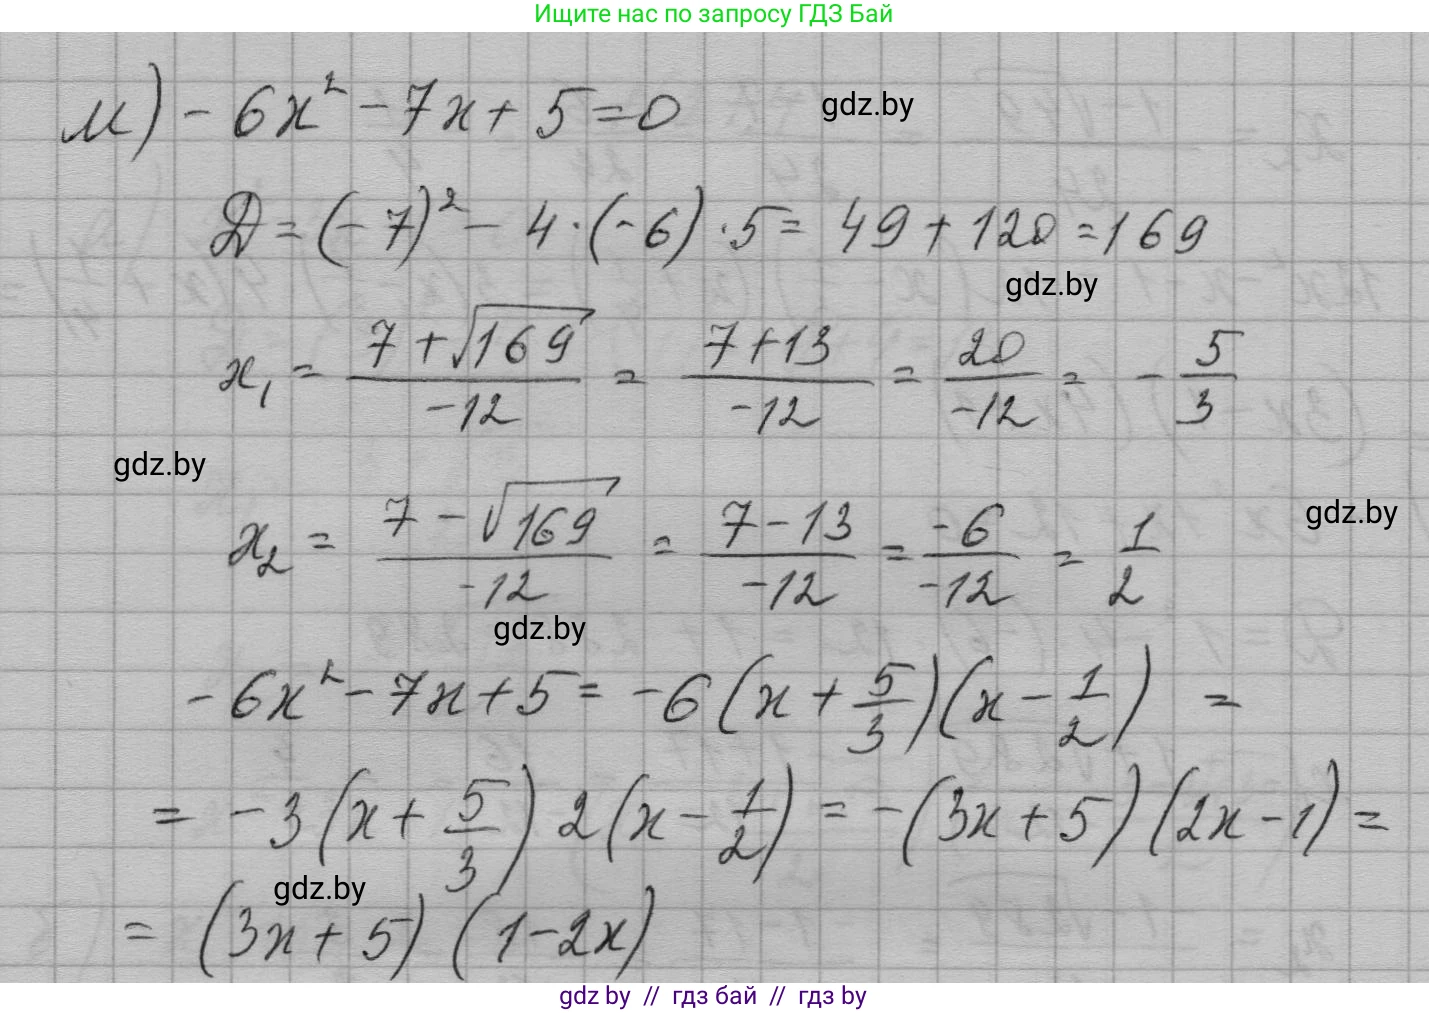 Ищите нас по запросу ГДЗ Бай
м) -6x² - 7x + 5 = 0
gdz.by
Д = (-7)² - 4·(-6)·5 = 49 + 120 = 169
gdz.by
x₁ = (7 + √169)/(-12) = (7 + 13)/(-12) = 20/(-12) = -5/3
gdz.by
x₂ = (7 - √169)/(-12) = (7 - 13)/(-12) = (-6)/(-12) = 1/2
gdz.by
gdz.by
-6x² - 7x + 5 = -6(x + 5/3)(x - 1/2) =
= -3(x + 5/3) 2(x - 1/2) = -(3x + 5)(2x - 1) =
gdz.by
= (3x + 5)(1 - 2x)
gdz.by // гдз бай // гдз by